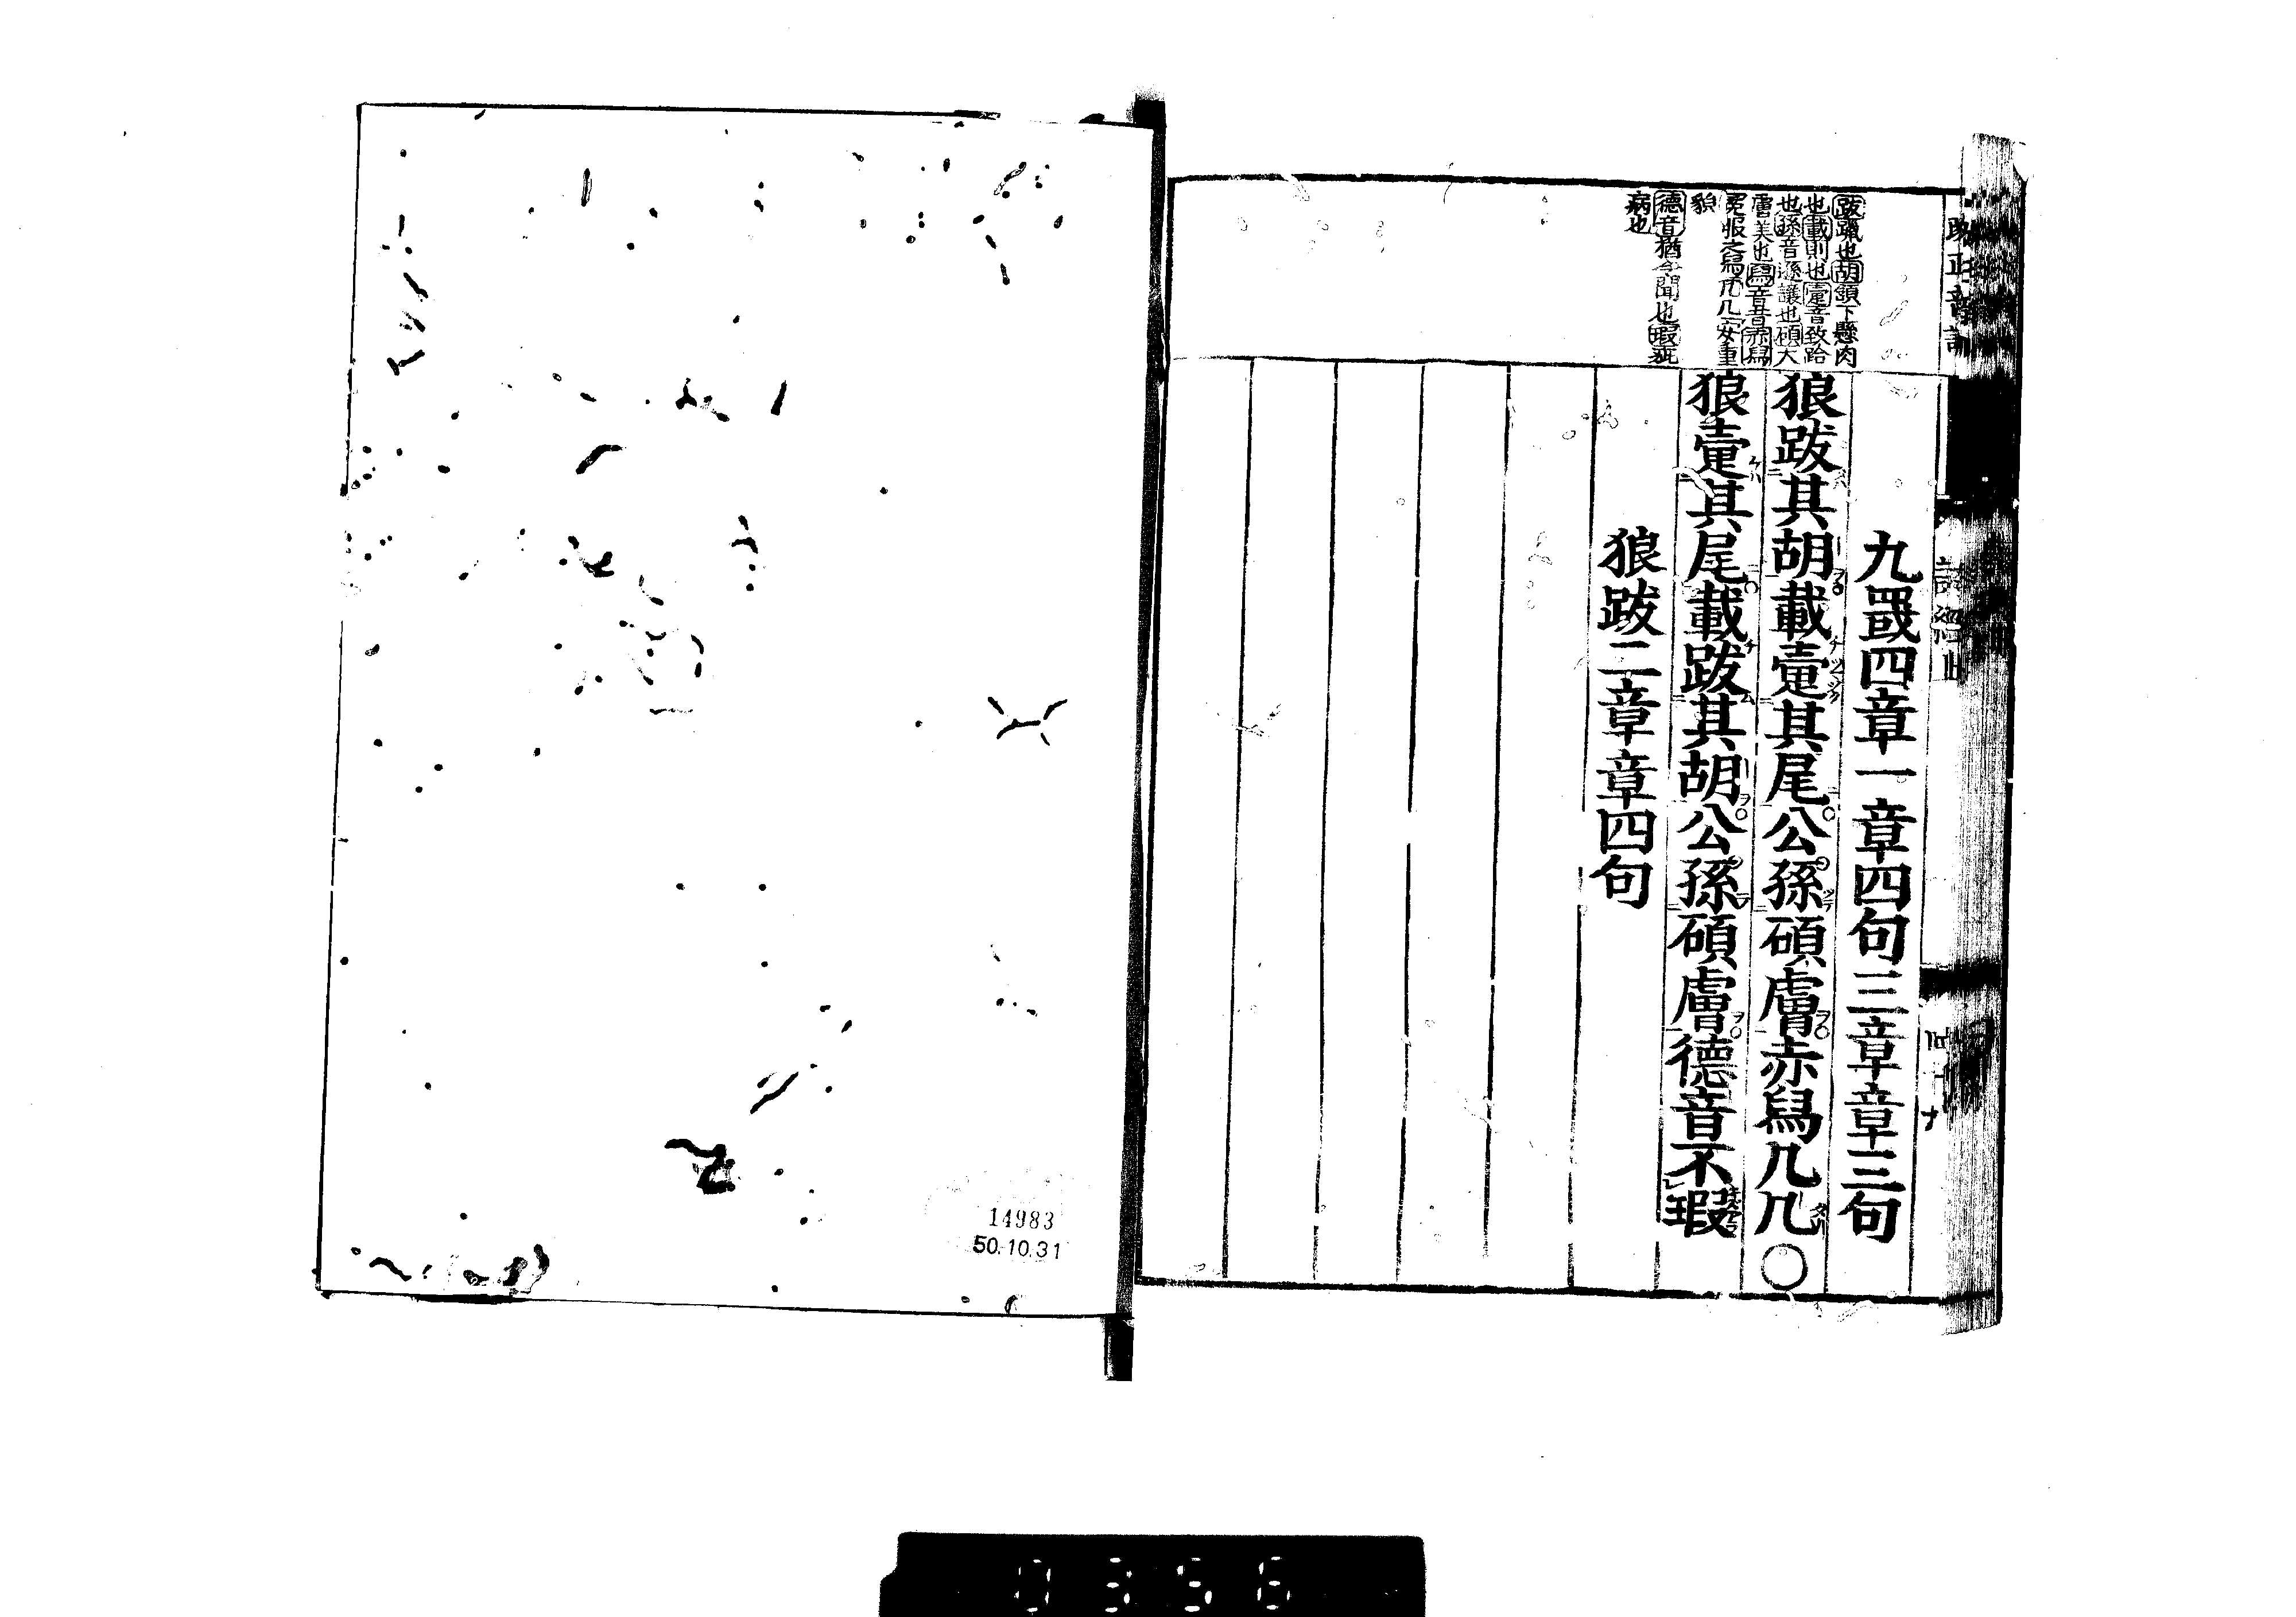 九罭四章一章四句三章章三句
狼跋其胡載疐其尾公孫碩膚赤舄几几○
狼疐其尾載跋其胡公孫碩膚德音不瑕
狼跋二章章四句
跋躐也胡頷下懸肉
也載則也疐音致跲
也孫音遜讓也碩大
膚美也舄音昔赤舄
冕服之舄几几安重
貌
德音猶令聞也瑕疵
病也
14983
50.10.31
0356